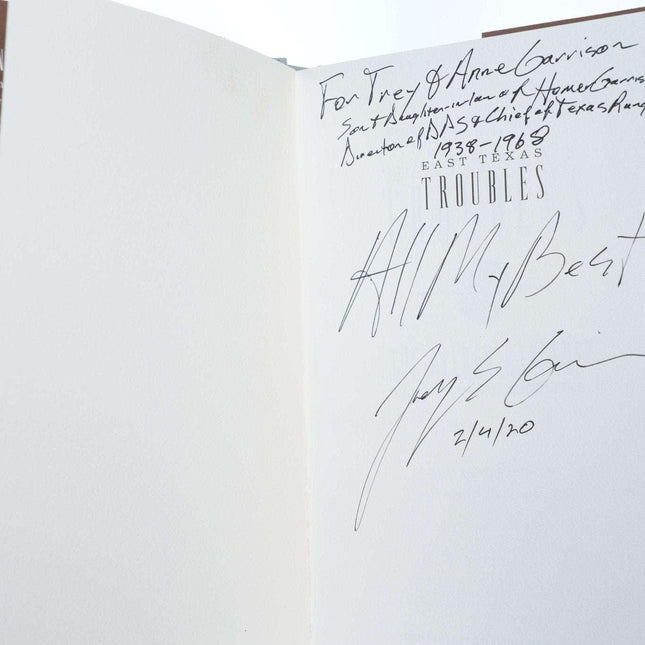 For Trey & Anne Garrison
Son & Daughter-in-law of Homer Garris
Director of DPS & Chief of Texas Rang
1938-1968
EAST TEXAS
TROUBLES
All My Best
Jody E Ginn
2/4/20